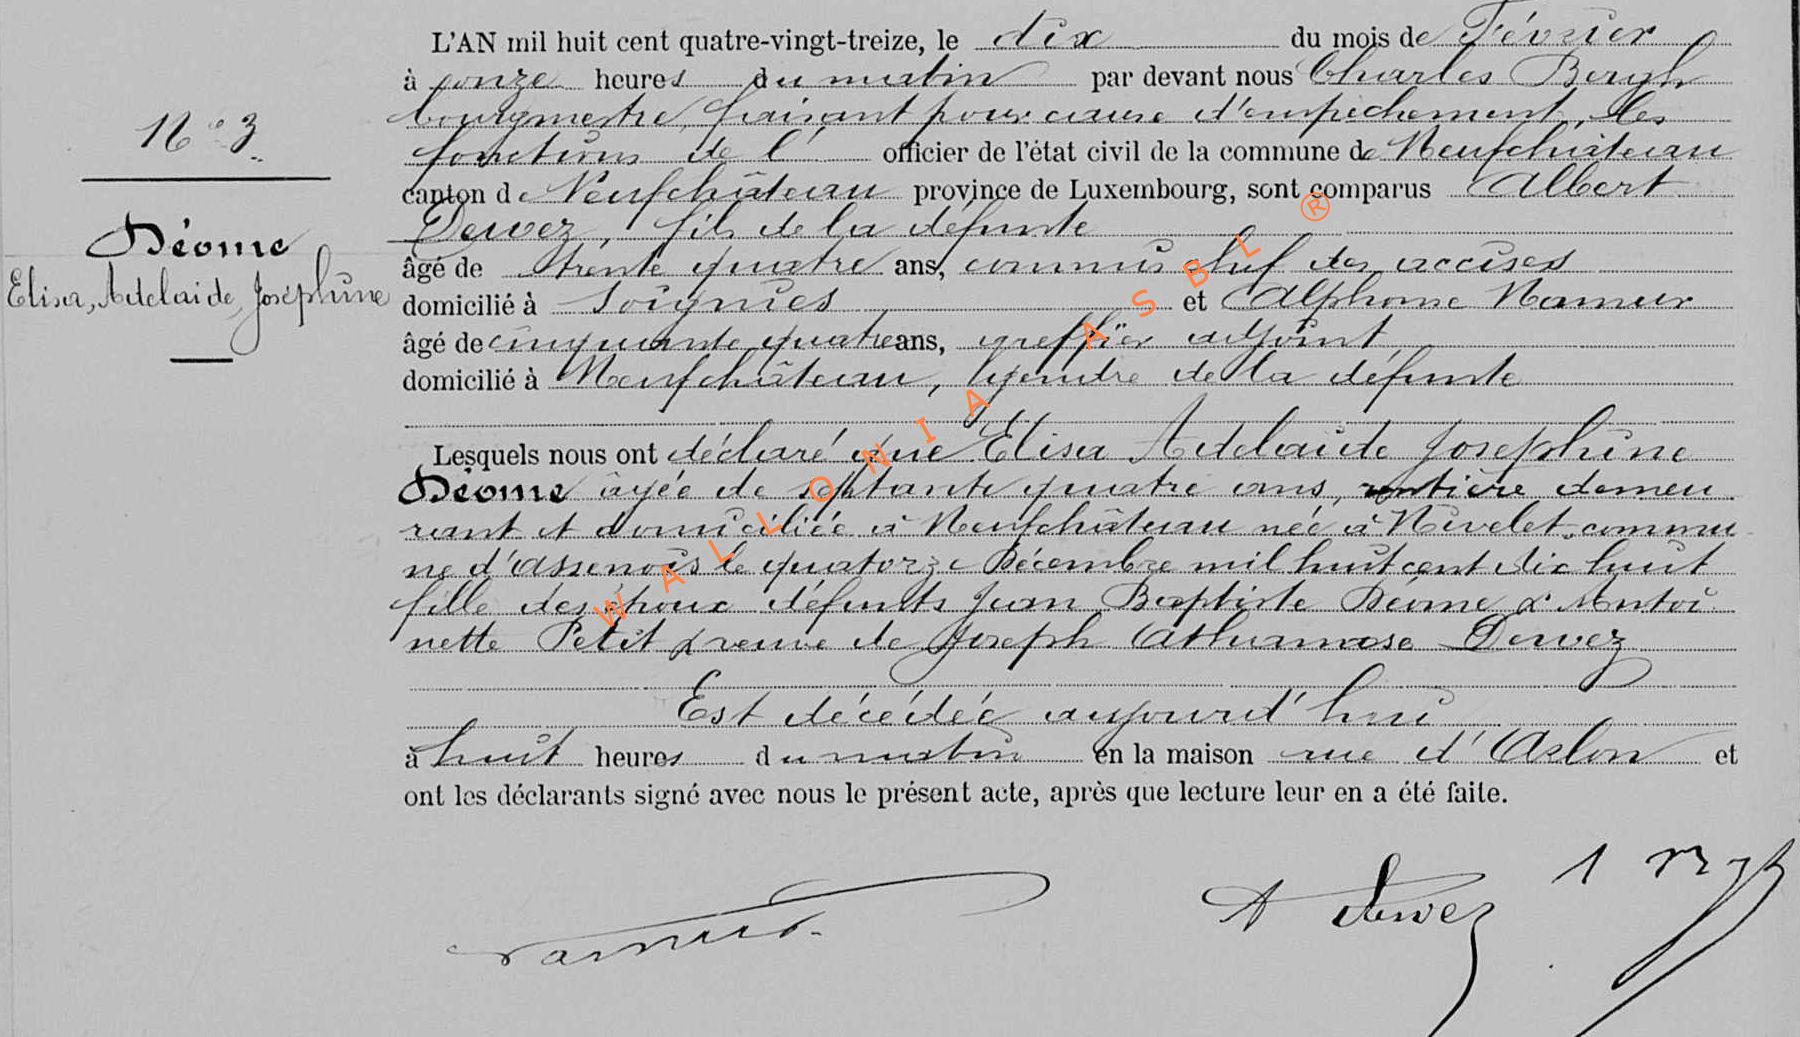 L'AN mil huit cent quatre-vingt-treize, le dix du mois de Février
à onze heures du matin par devant nous Charles Bergh
bourgmestre, faisant pour cause d'empêchement, les
fonctions de l' officier de l'état civil de la commune de Neufchâteau
canton de Neufchâteau province de Luxembourg, sont comparus Albert
Dewez, fils de la défunte
âgé de trente quatre ans, commis chef des accises
domicilié à Soignies et Alphonse Namur
âgé de cinquante quatre ans, greffier adjoint,
domicilié à Neufchâteau, gendre de la défunte
Lesquels nous ont déclaré que Elisa Adelaïde Joséphine
Déome âgée de septante quatre ans, rentière demeu
rant et domiciliée à Neufchâteau née à Nivelet commu
ne d'Assenois le quatorze Décembre mil huit cent dix huit
fille des époux défunts Jean Baptiste Déome & Antoi
nette Petit & veuve de Joseph Athanase Dewez
Est décédée aujourd'hui
à huit heures du matin en la maison rue d'Arlon et
ont les déclarants signé avec nous le présent acte, après que lecture leur en a été faite.
N° 3
Déome
Elisa, Adelaïde, Joséphine
A Dewez
WALLONIA ASBL ®